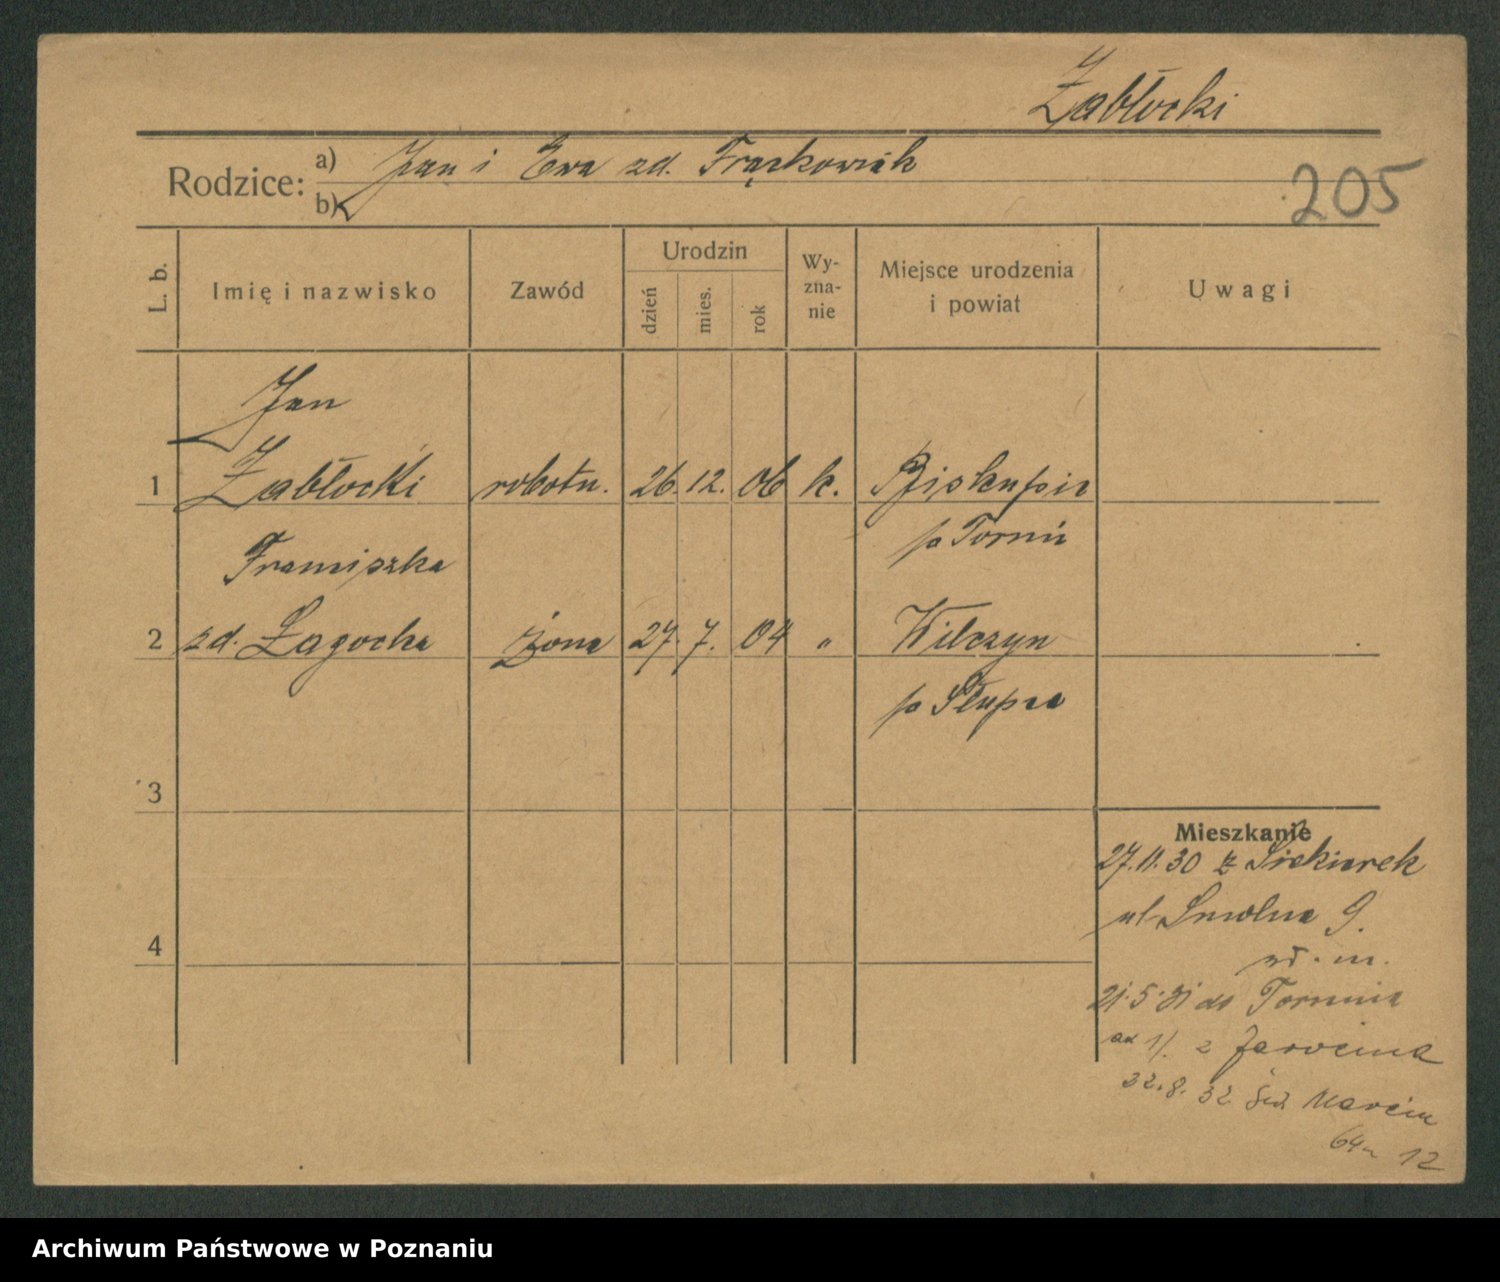 Żabłocki
Rodzice: a) Jan i Ewa zd. Frąckowiak
b)
205
L. b. Imię i nazwisko Zawód Urodzin dzień mies. rok Wyznanie Miejsce urodzenia i powiat Uwagi
Jan
1 Żabłocki robotn. 26. 12. 06 k. Biskupie
p Toruń
Franciszka
2 zd. Łagocka żona 27. 7. 04 " Wilczyn
p Słupca
3
4
Mieszkanie
27.11.30 z Siekierek
ul Smolna 9.
wł. m.
21.5.31 do Torunia
ad 1). z Jarocina
8. 32. Św Marcin
64 12
Archiwum Państwowe w Poznaniu